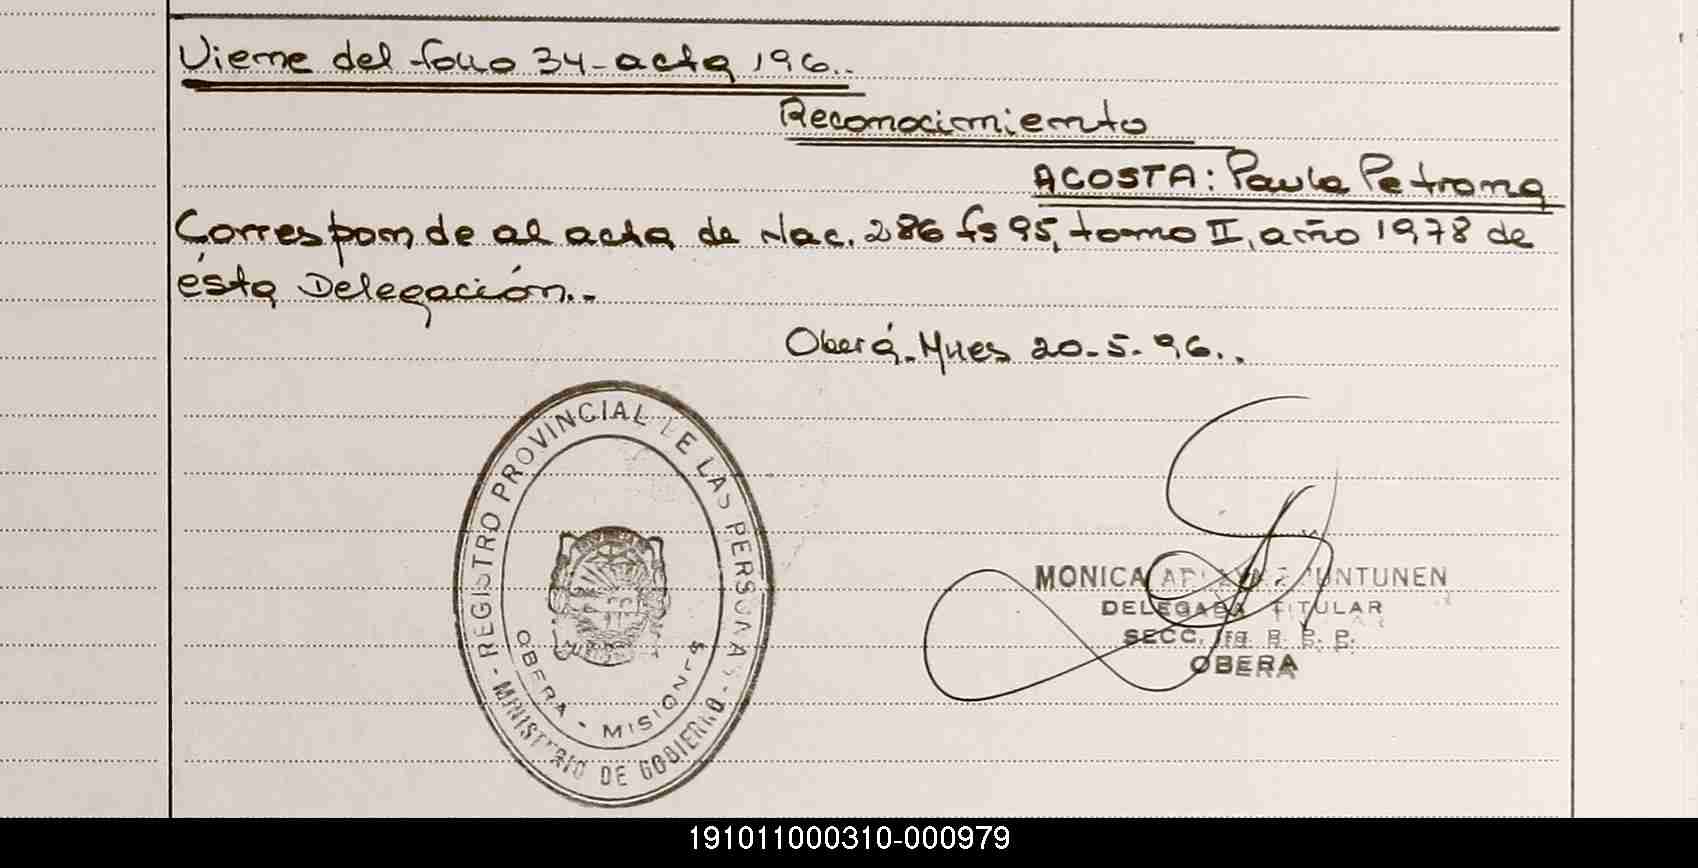 Viene del folio 34-acta 196..
Reconocimiento
ACOSTA: Paula Petrona
Corresponde al acta de Nac. 286 fs 95, tomo II, año 1978 de
ésta Delegación.-
Oberá-Mnes 20-5-96..
REGISTRO PROVINCIAL DE LAS PERSONAS
- MINISTERIO DE GOBIERNO -
OBERA - MISIONES
MONICA JUNTUNEN
DELEGADA TITULAR
SECC. 1ra R. P. P.
OBERA
191011000310-000979